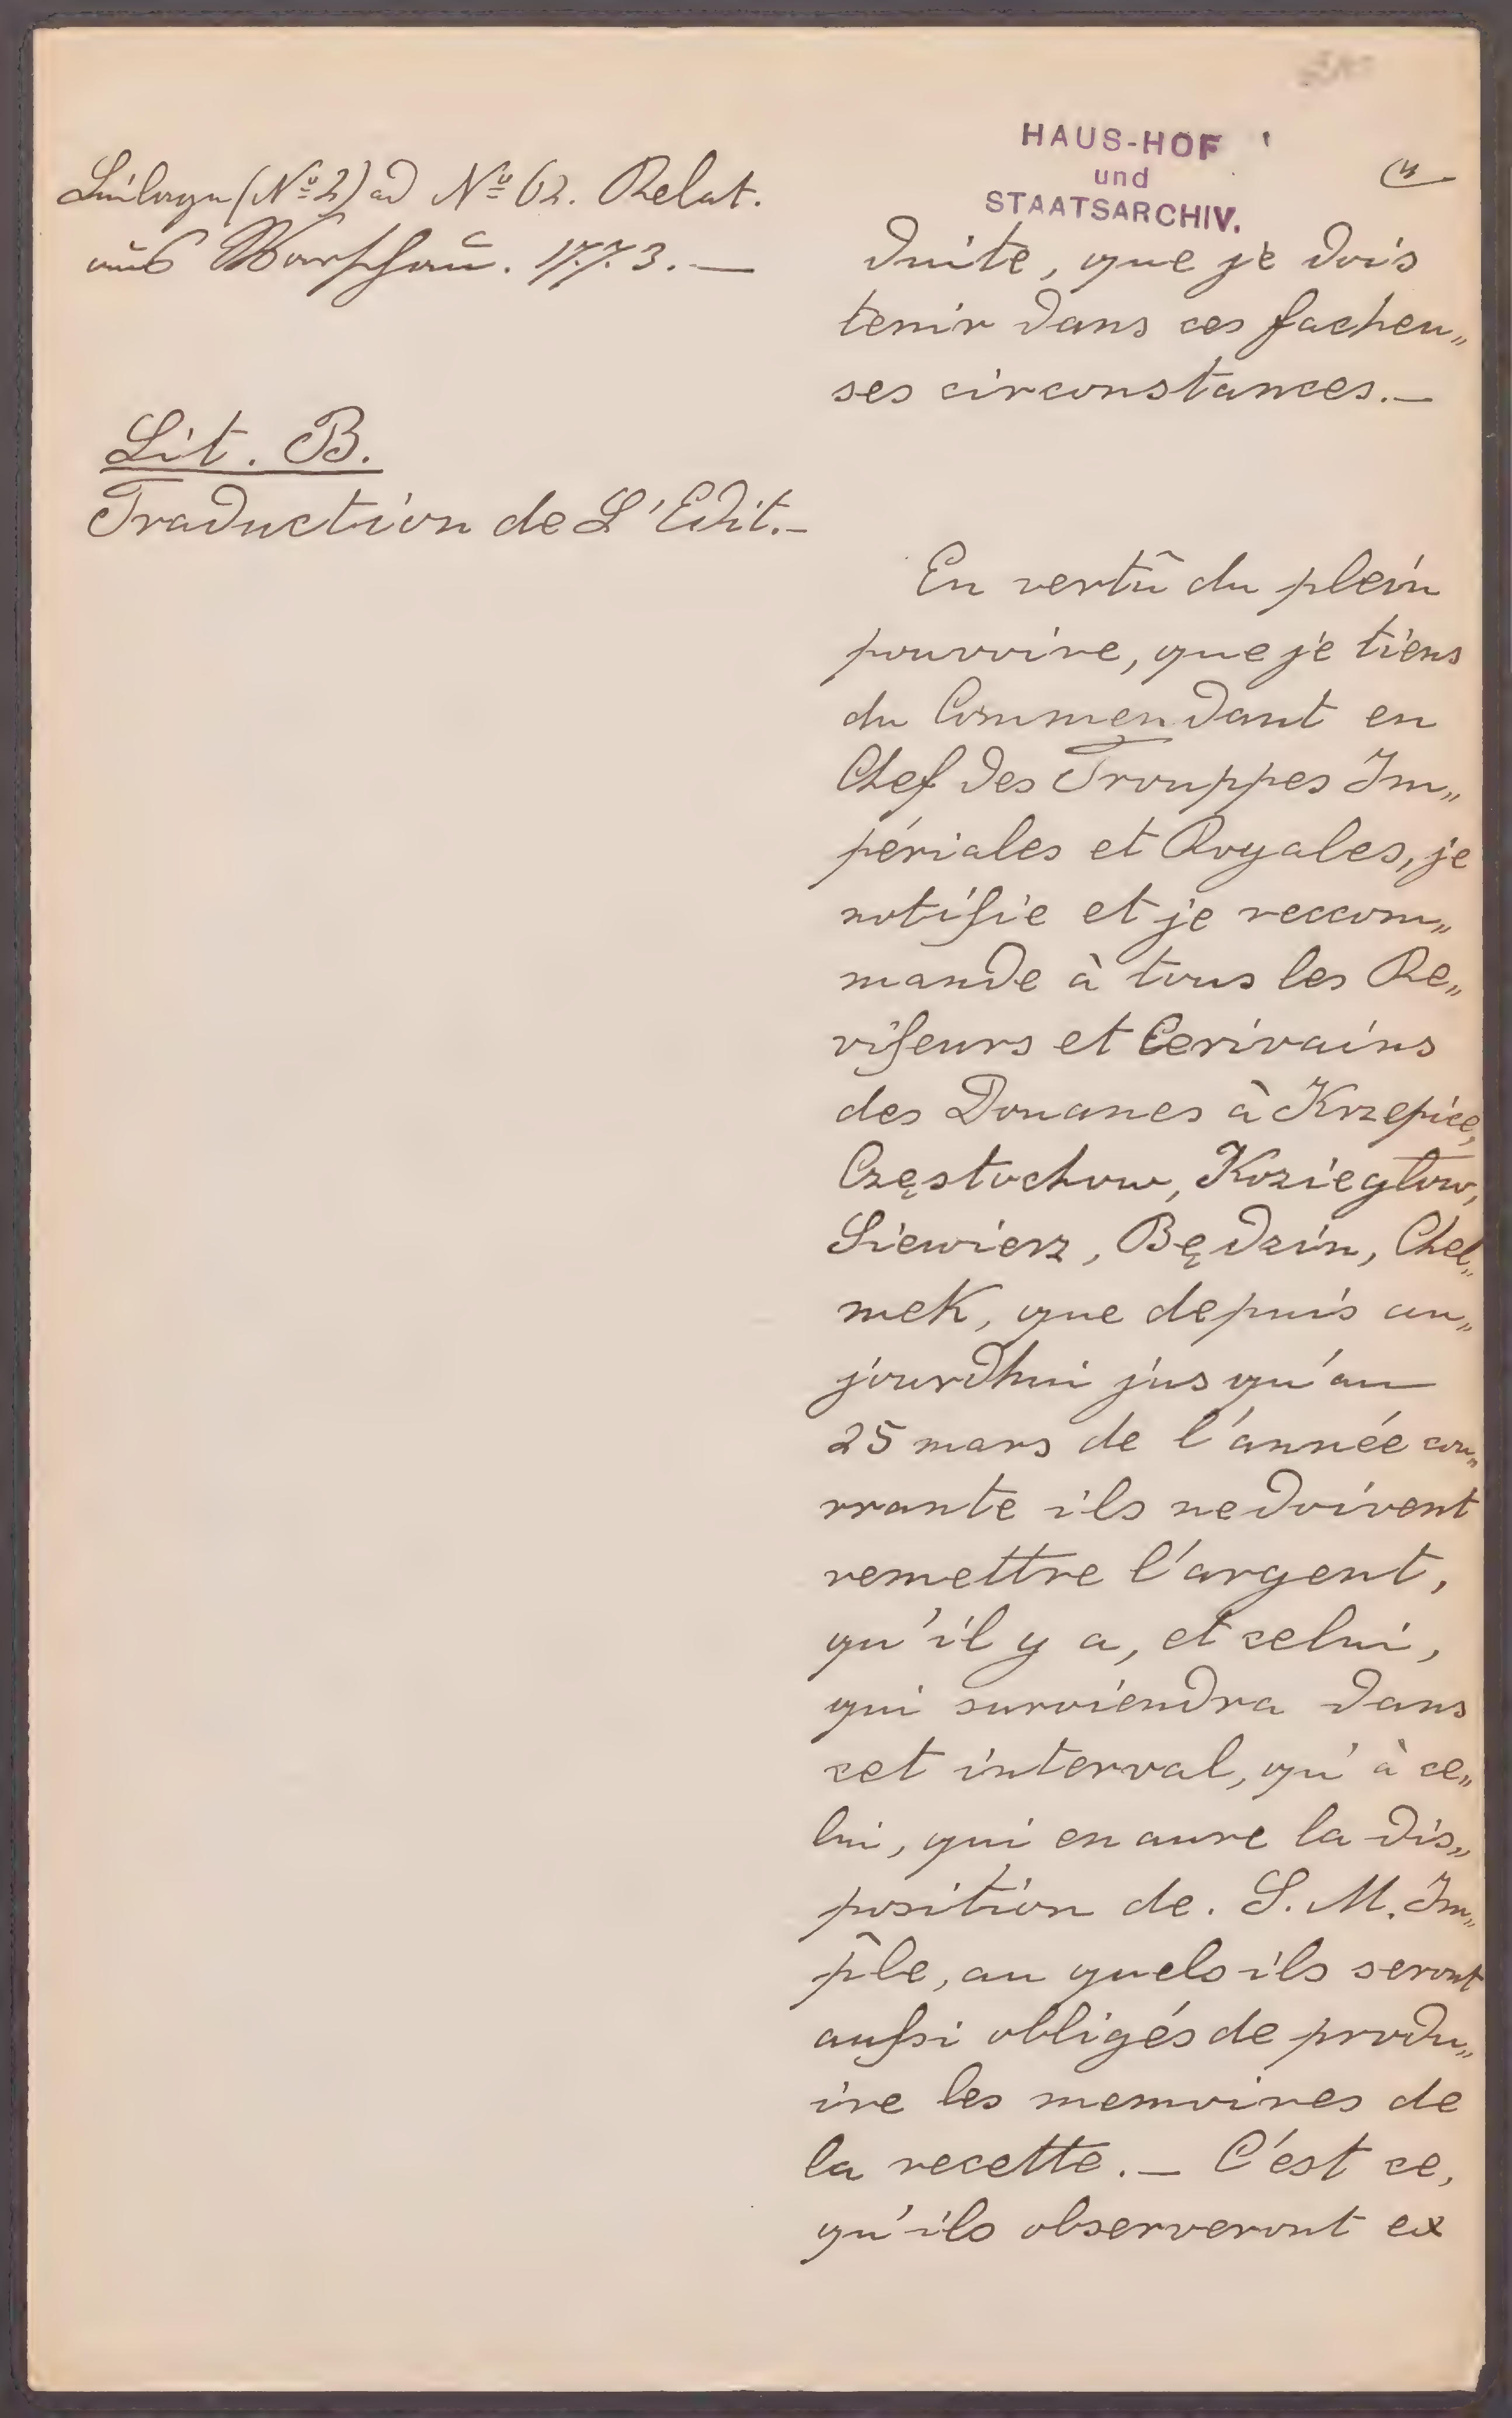 HAUS-HOF
und
STAATSARCHIV.
Beilage (Nº 2) ad Nº 62. Relat.
aus Warschau. 1773. —
Lit. B.
Traduction de L'Edit. —
duite, que je dois
tenir dans ces facheu„
ses circonstances. —
En vertû du plein
pouvoire, que je tiens
du Commendant en
Chef des Trouppes Im„
périales et Royales, je
notifie et je reccom„
mande à tous les Re„
viseurs et Ecrivains
des Douanes à Krzepice,
Częstochow, Koziegłow,
Siewierz, Będzin, Chel„
mek, que depuis au„
jourdhui jusqu'au
25 mars de l'année cou„
rrante ils ne doivent
remettre l'argent,
qu'il y a, et celui,
qui surviendra dans
cet interval, qu'à ce„
lui, qui en aure la dis„
position de. S. M. Im„
pîle, au quels ils seront
aussi obligés de produ„
ire les memoires de
la recette. — C'est ce,
qu'ils observeront ex